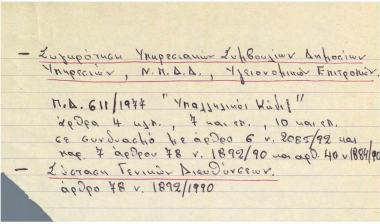 - Συγκρότηση Υπηρεσιακών Συμβουλίων Δημοσίων
Υπηρεσιών, Ν.Π.Δ.Δ., Υγειονομικών Επιτροπών.
Π.Δ. 611/1977 "Υπαλληλικός Κώδιξ"
άρθρα 4 κ.επ., 7 και επ., 10 και επ.
σε συνδυασμό με άρθρο 6 ν. 2085/92 και
παρ. 7 άρθρου 78 ν. 1892/90 και αρθ. 40 ν 1884/90
- Σύσταση Γενικών Διευθύνσεων.
άρθρο 78 ν. 1892/1990